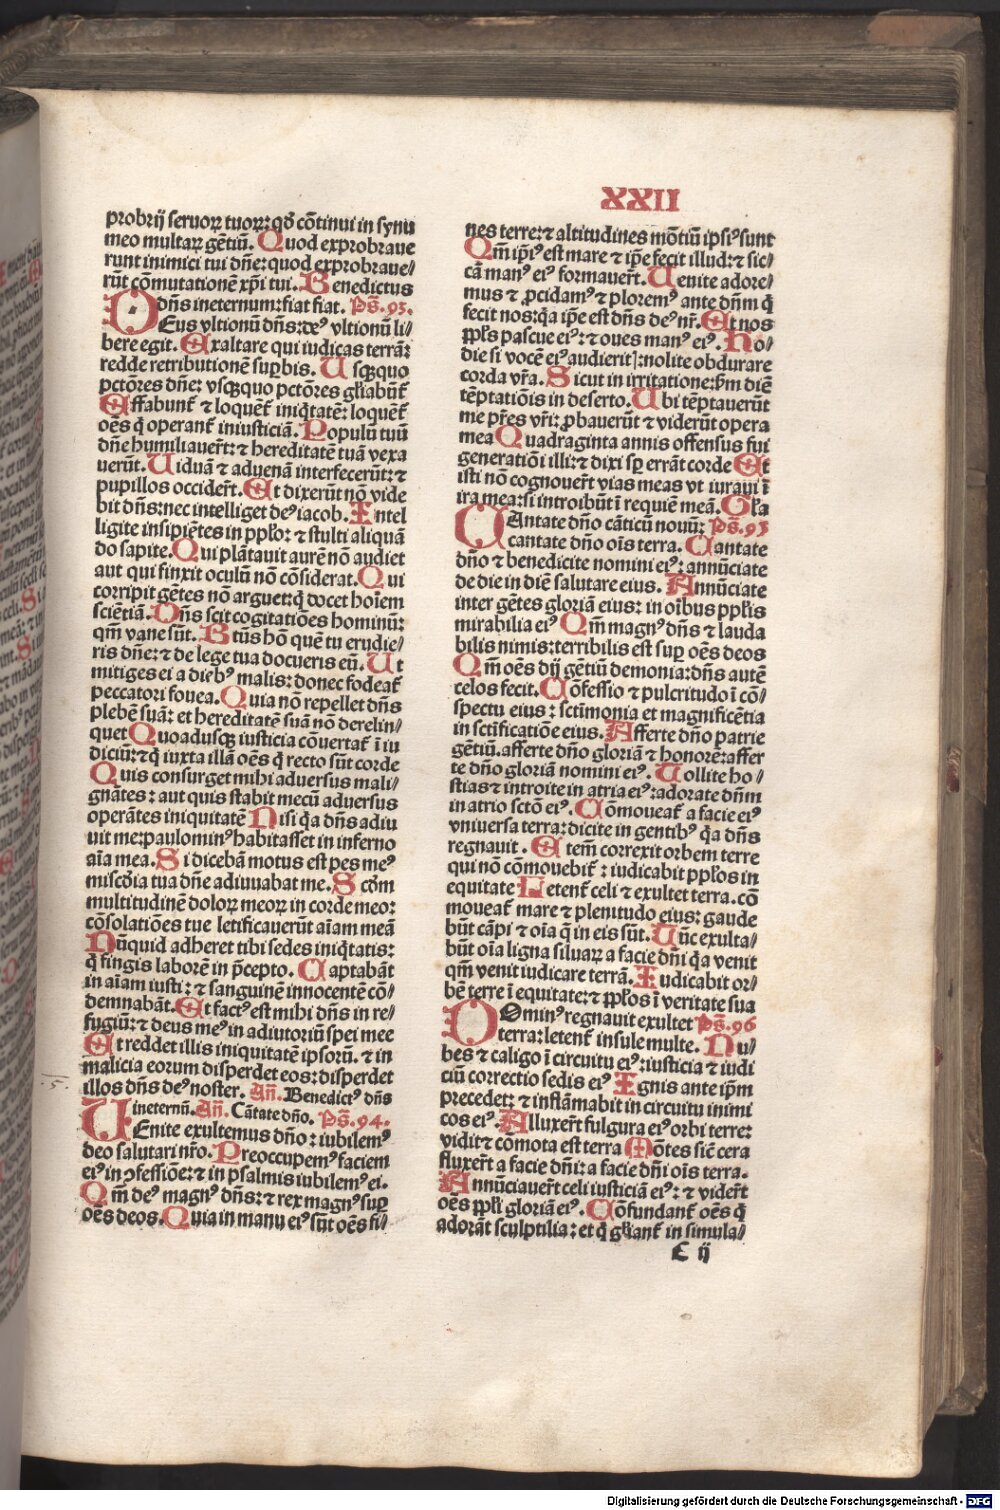 XXII
probrij seruoꝝ tuoꝝ: qđ cōtinui in synu
meo multaꝝ gētiū. Quod exprobraue
runt inimici tui dñe: quod exprobraue/
rūt cōmutationē xp̄i tui. Benedictus
dñs ineternum: fiat fiat. Pš. 93.
DEus vltionū dñs: deꝰ vltionū li/
bere egit. Exaltare qui iudicas terrā:
redde retributionē suꝑbis. Usqꝫquo
pctōres dñe: vsqꝫquo pctōres gl̄iabūt᷑
Effabunt᷑ ⁊ loquet᷑ iniq̄tatē: loquet᷑
oēs q̄ operant᷑ iniusticiā. Populū tuū
dñe humiliauer̄t: ⁊ hereditatē tuā vexa
uerūt. Uiduā ⁊ aduenā interfecerūt: ⁊
pupillos occider̄t. Et dixerūt nō vide
bit dñs: nec intelliget deꝰ iacob. Intel
ligite insipiētes in ppl̄o: ⁊ stulti aliquā
do sapite. Qui plātauit aurē nō audiet
aut qui finxit oculū nō cōsiderat. Qui
corripit gētes nō arguet: q̄ docet hoīem
sciētiā. Dñs scit cogitatiōes hominū:
qm̄ vane sūt. Btūs hō quē tu erudie/
ris dñe: ⁊ de lege tua docueris eū. Ut
mitiges ei a diebꝰ malis: donec fodeat᷑
peccatori fouea. Quia nō repellet dñs
plebē suā: et hereditatē suā nō derelin/
quet Quoadusqꝫ iusticia cōuertat᷑ ī iu
diciū: ⁊ q̄ iuxta illā oēs q̄ recto sūt corde
Quis consurget mihi aduersus mali/
gnātes: aut quis stabit mecū aduersus
operātes iniquitatē Nisi q̄a dñs adiu
uit me: paulominꝰ habitasset in inferno
aīa mea. Si dicebā motus est pes meꝰ
miscd̄ia tua dñe adiuuabat me. Scd̄m
multitudinē doloꝝ meoꝝ in corde meo:
cōsolatiōes tue letificauerūt aīam meā
Nūquid adheret tibi sedes iniq̄tatis:
q̄ fingis laborē in p̄cepto. Captabāt
in aīam iusti: ⁊ sanguinē innocentē cō/
demnabāt. Et factꝰ est mihi dñs in re/
fugiū: ⁊ deus meꝰ in adiutoriū spei mee
Et reddet illis iniquitatē ipsorū. ⁊ in
malicia eorum disperdet eos: disperdet
illos dñs deꝰ noster. Añ. Benedictꝰ dñs
ineternū. Añ. Cātate dño. Pš. 94.
UEnite exultemus dño: iubilemꝰ
deo salutari nr̄o. Preoccupemꝰ faciem
eiꝰ in ꝯfessiōe: ⁊ in psalmis iubilemꝰ ei.
Qm̄ deꝰ magnꝰ dñs: ⁊ rex magnꝰ suꝑ
oēs deos. Quia in manu eiꝰ sūt oēs fi/
nes terre: ⁊ altitudines mōtiū ipsiꝰ sunt
Qm̄ ip̄iꝰ est mare ⁊ ip̄e fecit illud: ⁊ sic/
cā manꝰ eiꝰ formauer̄t. Uenite adore/
mus ⁊ ꝓcidamꝰ ⁊ ploremꝰ ante dñm q̄
fecit nos: q̄a ip̄e est dñs deꝰ nr̄. Et nos
ppl̄s pascue eiꝰ: ⁊ oues manꝰ eiꝰ. Ho/
die si vocē eiꝰ audieritꝭ: nolite obdurare
corda vr̄a. Sicut in irritatione: ẜm diē
tēptatiōis in deserto. Ubi tēptauerūt
me pr̄es vr̄i: ꝓbauerūt ⁊ viderūt opera
mea Quadraginta annis offensus fui
generatiōi illi: ⁊ dixi sꝑ errāt corde Et
isti nō cognouer̄t vias meas vt iuraui ī
ira mea: si introibūt ī requiē meā. Gl̄a
CAntate dño cāticū nouū: Pš. 95
cantate dño oīs terra. Cantate
dño ⁊ benedicite nomini eiꝰ: annūciate
de die in diē salutare eius. Annūciate
inter gētes gloriā eius: in oībus ppl̄is
mirabilia eiꝰ Qm̄ magnꝰ dñs ⁊ lauda
bilis nimis: terribilis est suꝑ oēs deos
Qm̄ oēs dij gētiū demonia: dñs autē
celos fecit. Cōfessio ⁊ pulcritudo ī cō/
spectu eius: sctīmonia et magnificētia
in sctificatiōe eius. Afferte dño patrie
gētiū. afferte dño gloriā ⁊ honorē: affer
te dño gloriā nomini eiꝰ. Tollite ho/
stias ⁊ introite in atria eiꝰ: adorate dñm
in atrio sctō eiꝰ. Cōmoueat᷑ a facie eiꝰ
vniuersa terra: dicite in gentibꝰ q̄a dñs
regnauit. Etem̄ correxit orbem terre
qui nō cōmouebit᷑: iudicabit ppl̄os in
equitate Letent᷑ celi ⁊ exultet terra. cō
moueat᷑ mare ⁊ plenitudo eius: gaude
būt cāpi ⁊ oīa q̄ in eis sūt. Tūc exulta/
būt oīa ligna siluaꝝ a facie dñi q̄a venit
qm̄ venit iudicare terrā. Iudicabit or/
bē terre ī equitate: ⁊ ppl̄os ī veritate sua
DOminꝰ regnauit exultet Pš. 96
terra: letent᷑ insule multe. Nu/
bes ⁊ caligo ī circuitu eiꝰ: iusticia ⁊ iudi
ciū correctio sedis eiꝰ Ignis ante ip̄m
precedet: ⁊ inflāmabit in circuitu inimi
cos eiꝰ. Alluxer̄t fulgura eiꝰ orbi terre:
vidit ⁊ cōmota est terra Mōtes sic̄ cera
fluxer̄t a facie dñi: a facie dñi oīs terra.
Annūciauer̄t celi iusticiā eiꝰ: ⁊ vider̄t
oēs ppl̄i gloriā eiꝰ. Cōfundant᷑ oēs q̄
adorāt sculptilia: et q̄ gl̄iant᷑ in simula/
C ij
Digitalisierung gefördert durch die Deutsche Forschungsgemeinschaft - DFG